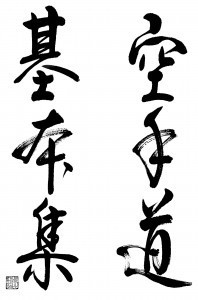 空手道
基本集